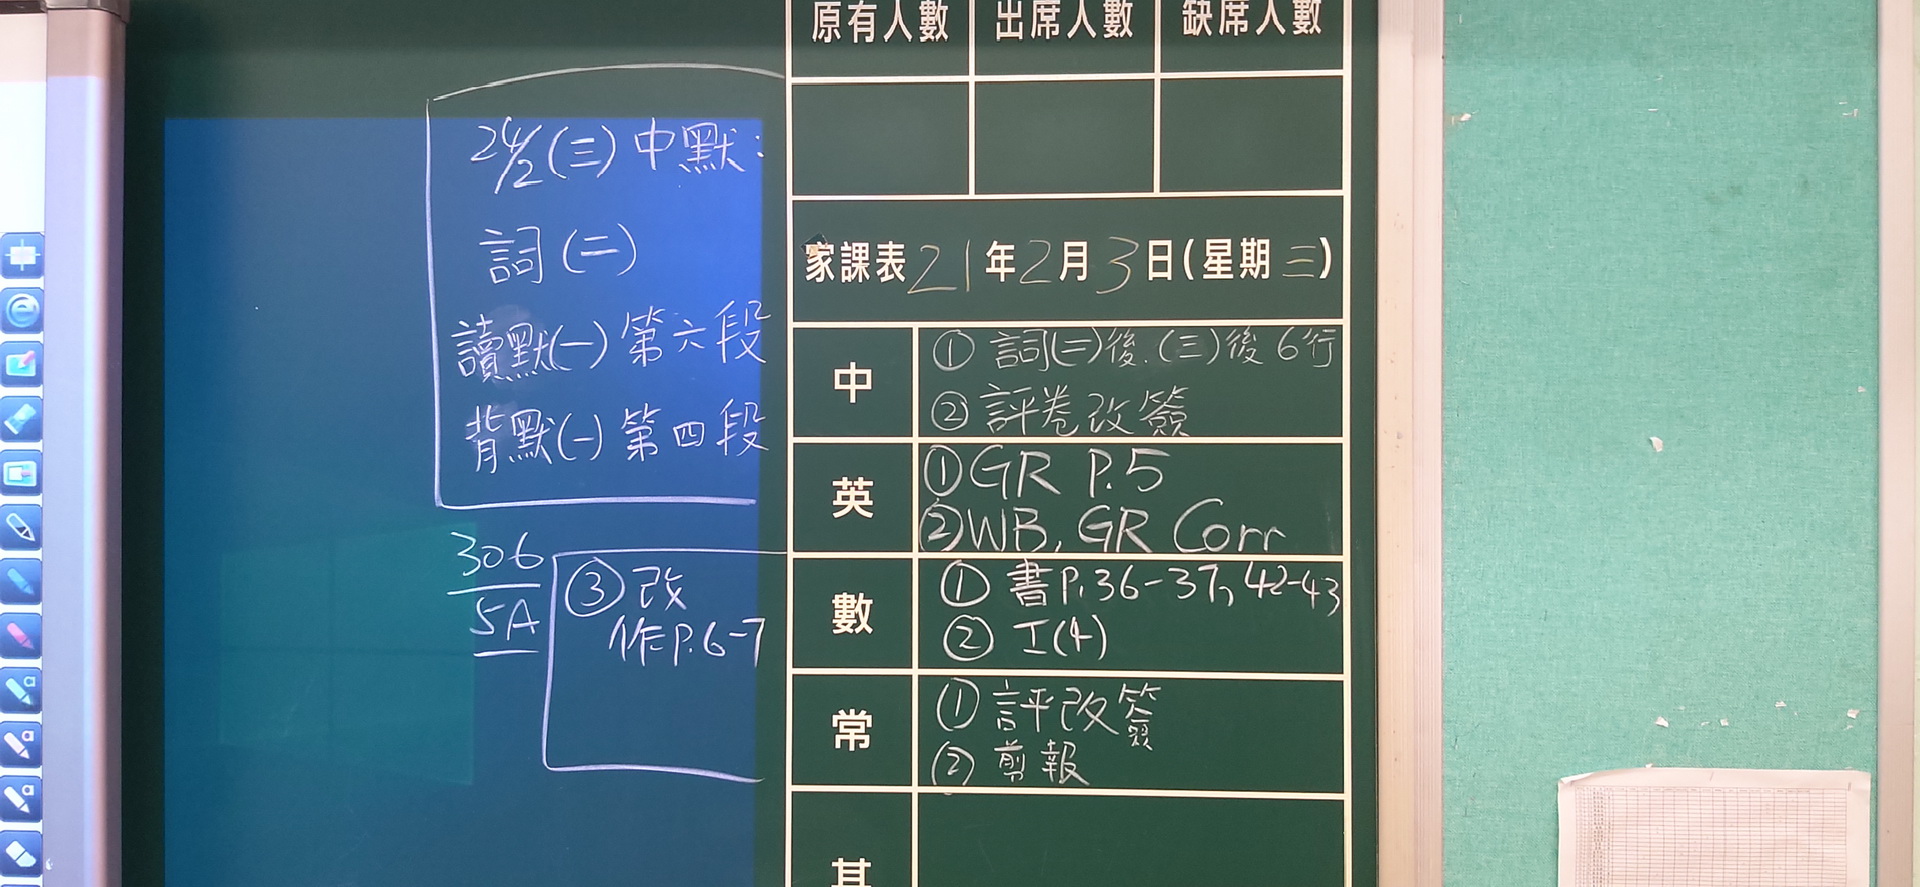 原有人數 出席人數 缺席人數
24/2(三)中默:
詞(二)
讀默(一)第六段
背默(一)第四段
306
5A
家課表21年2月3日(星期三)
中
① 詞(二)後.(三)後6行
② 評卷改簽
英
①GR P.5
②WB, GR Corr
數
① 書P.36-37, 42-43
② I(4)
③ 改
作P.6-7
常
① 評改簽
② 剪報
其